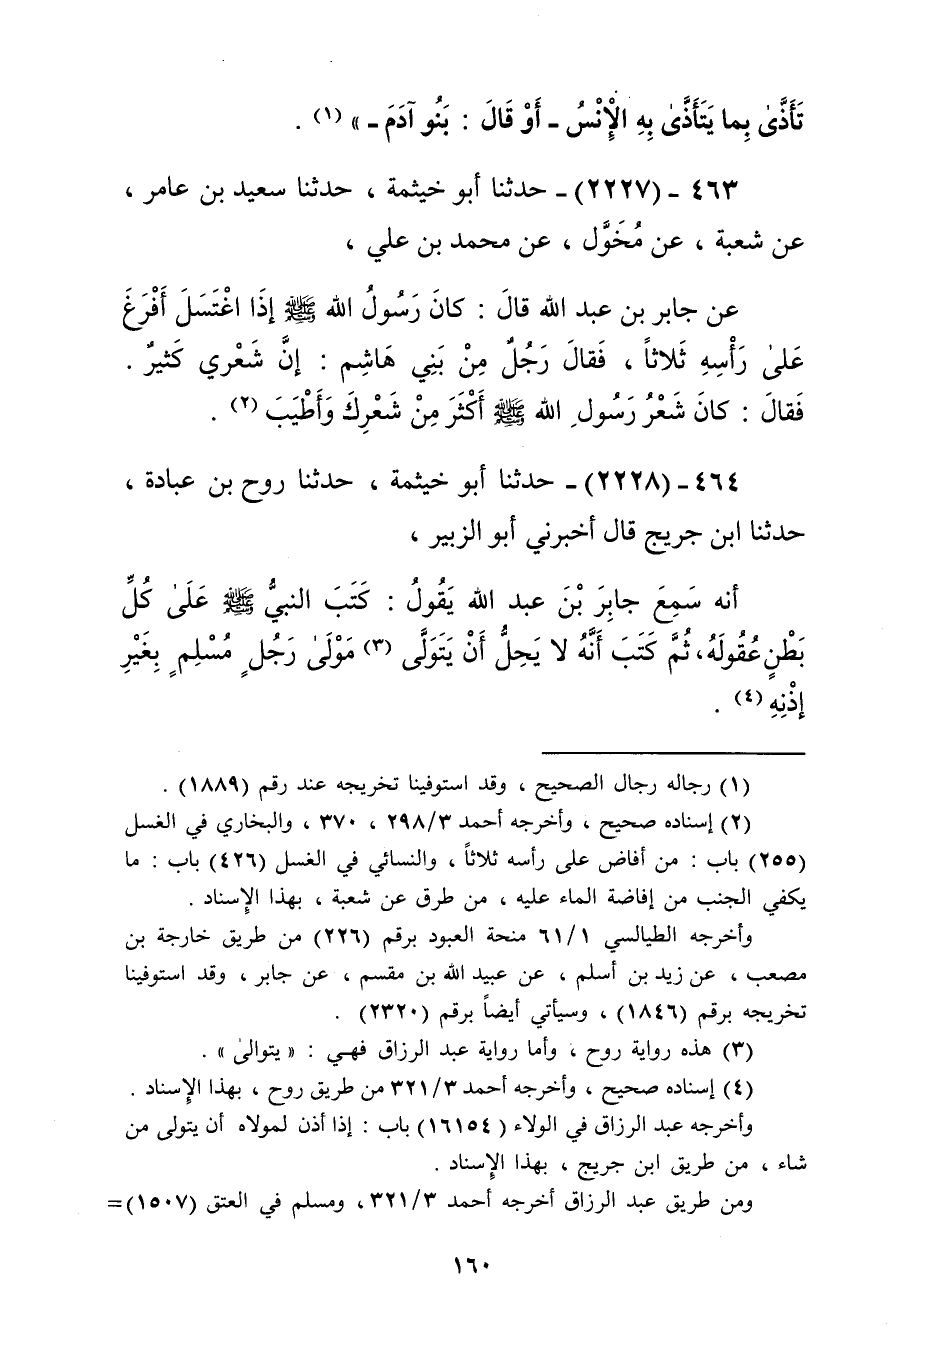 تَأَذَّىٰ بِما يَتَأَذَّىٰ بِهِ الْإِنْسُ ـ أَوْ قَالَ : بَنُو آدَمَ ـ » (١) .
٤٦٣ ـ (٢٢٢٧) ـ حدثنا أبو خيثمة ، حدثنا سعيد بن عامر ،
عن شعبة ، عن مُخَوَّل ، عن محمد بن علي ،
عن جابر بن عبد الله قالَ : كانَ رَسُولُ الله ﷺ إذَا اغْتَسَلَ أَفْرَغَ
عَلىٰ رَأْسِهِ ثَلاثاً ، فَقالَ رَجُلٌ مِنْ بَنِي هَاشِم : إنَّ شَعْرِي كَثيرٌ .
فَقالَ : كانَ شَعْرُ رَسُولِ الله ﷺ أَكْثَرَ مِنْ شَعْرِكَ وَأَطْيَبَ (٢) .
٤٦٤ ـ (٢٢٢٨) ـ حدثنا أبو خيثمة ، حدثنا روح بن عبادة ،
حدثنا ابن جريج قال أخبرني أبو الزبير ،
أنه سَمِعَ جابِرَ بْنَ عبد الله يَقُولُ : كَتَبَ النبيُّ ﷺ عَلَىٰ كُلِّ
بَطْنٍ عُقُولَهُ، ثُمَّ كَتَبَ أَنَّهُ لا يَحِلُّ أَنْ يَتَوَلَّى (٣) مَوْلَىٰ رَجُلٍ مُسْلِمٍ بِغَيْرِ
إذْنِهِ (٤) .
(١) رجاله رجال الصحيح ، وقد استوفينا تخريجه عند رقم (١٨٨٩) .
(٢) إسناده صحيح ، وأخرجه أحمد ٢٩٨/٣ ، ٣٧٠ ، والبخاري في الغسل
(٢٥٥) باب : من أفاض على رأسه ثلاثاً ، والنسائي في الغسل (٤٢٦) باب : ما
يكفي الجنب من إفاضة الماء عليه ، من طرق عن شعبة ، بهذا الإسناد .
وأخرجه الطيالسي ٦١/١ منحة العبود برقم (٢٢٦) من طريق خارجة بن
مصعب ، عن زيد بن أسلم ، عن عبيد الله بن مقسم ، عن جابر ، وقد استوفينا
تخريجه برقم (١٨٤٦) ، وسيأتي أيضاً برقم (٢٣٢٠) .
(٣) هذه رواية روح ، وأما رواية عبد الرزاق فهي : « يتوالىٰ » .
(٤) إسناده صحيح ، وأخرجه أحمد ٣٢١/٣ من طريق روح ، بهذا الإسناد .
وأخرجه عبد الرزاق في الولاء (١٦١٥٤) باب : إذا أذن لمولاه أن يتولى من
شاء ، من طريق ابن جريج ، بهذا الإسناد .
ومن طريق عبد الرزاق أخرجه أحمد ٣٢١/٣ ، ومسلم في العتق (١٥٠٧)=
١٦٠